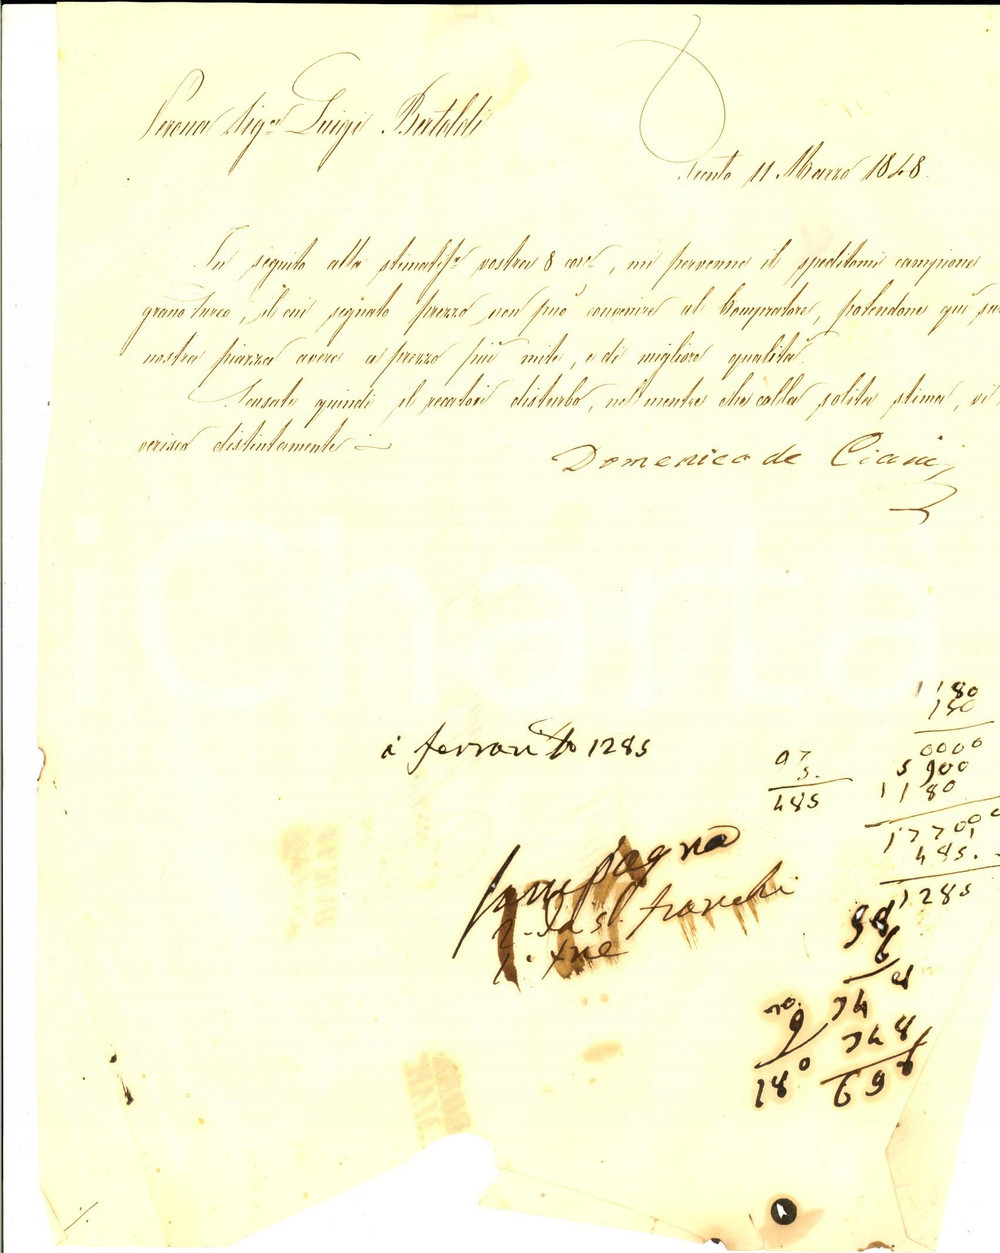 Verona Sigr Luigi Bertoldi
Trento 11 Marzo 1848.
In seguito alla stimatissa vostra 8 corre, mi pervenne il speditomi campione
grano turco, il cui segnato prezzo non può convenire al Compratore, potendone quì su
nostra piazza avere a prezzo più mite, e di migliore qualità.
Scusate quindi il recatovi disturbo, nel mentre che colla solita stima, vi
verisco distintamente
Domenico de Ciani
iCharta
1180
180
0000
1285
97
5.
485
5900
1180
17700
485.
franchi
74
748
180
698